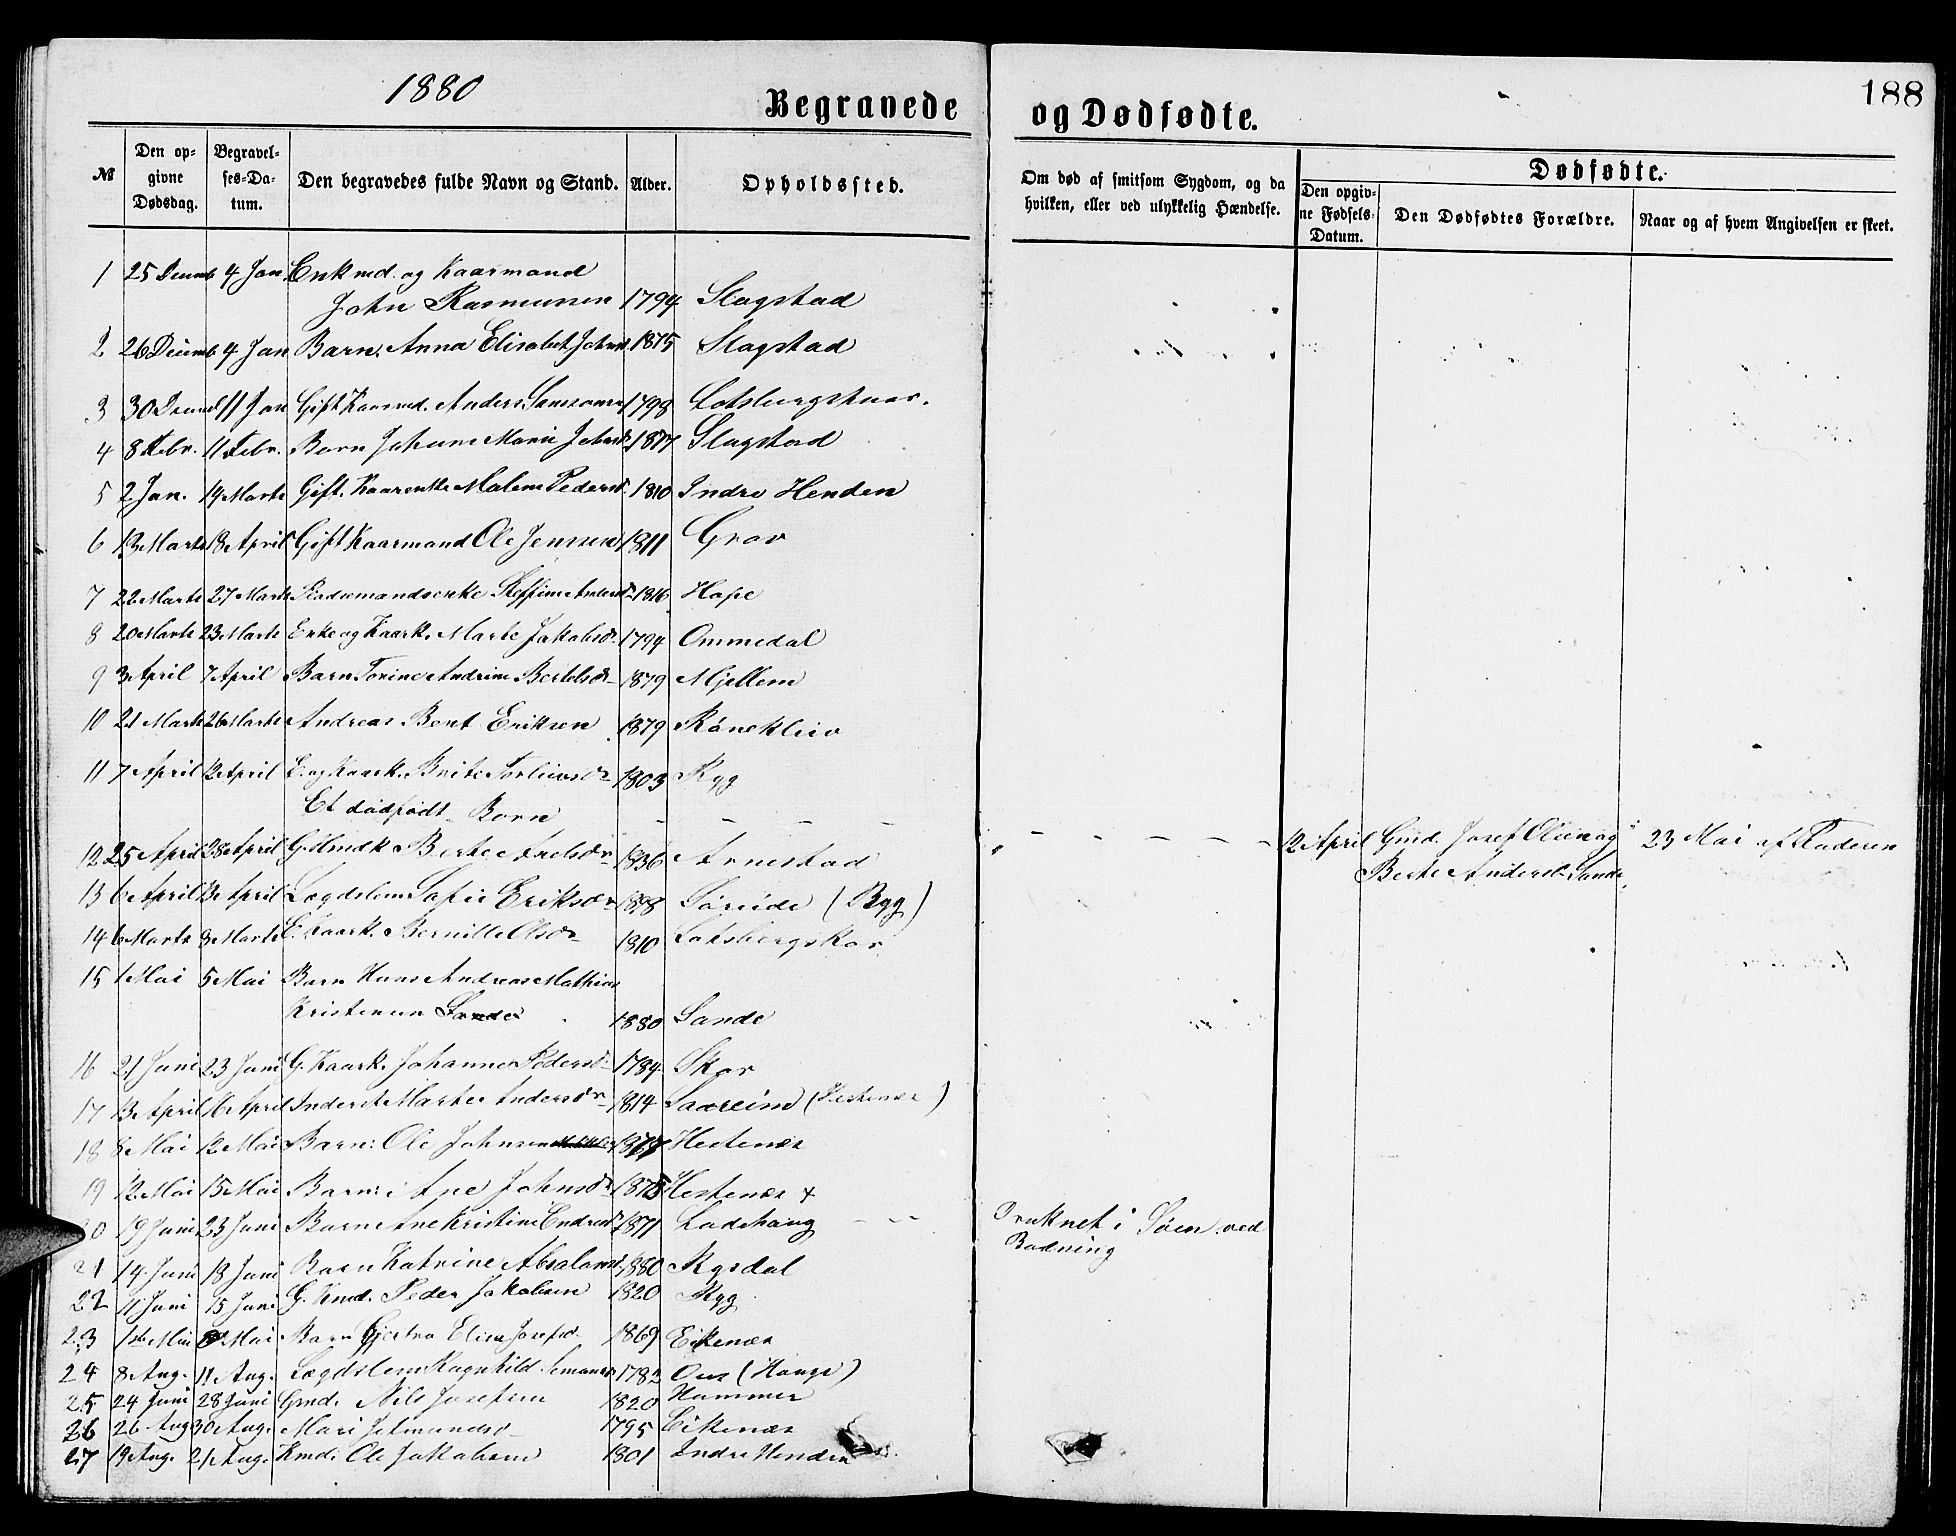 1880
188
Begravede og Dødfødte.
№
Den opgivne Dødsdag.
Begravelses-Datum.
Den begravedes fulde Navn og Stand.
Alder.
Opholdssted.
Om død af smitsom Sygdom, og da hvilken, eller ved ulykkelig Hændelse.
Dødfødte.
Den opgivne Fødsels-Datum.
Den Dødfødtes Forældre.
Naar og af hvem Angivelsen er skeet.
1 25 Decemb 4 Jan Enkmd. og Kaarmand
John Rasmussen 1794 Slagstad
2 26 Decemb 4 Jan Barn. Anna Elisabet Johnsd 1875 Slagstad
3 30 Decemb 11 Jan Gift Kaarmd. Anders 1798
4 8 Febr. 11 Febr. Barn Johane Marie Johnsd 1877 Slagstad
5 2 Jan. 19 Marts Gift. Kaarenke Malene Pedersd. 1810 Indre Henden
6 13 Marts 18 April Gift Kaarmand Ole Jensen 1811 Grov
7 22 Marts 27 Marts Steffine Andersdr 1816 Hope
8 20 Marts 23 Marts Enke og Kaark. Marte Jakobsdr. 1794 Ommedal
9 3 April 7 April Barn Torine Andrine Bertelsdr 1879 Mjellem
10 21 Marts 26 Marts Andreas Bent Eriksen 1879 Røneklev
11 7 April 12 April E. og Kaark. Brite Torleivsdr 1803 Ryg
Et dødfødt Barn – – – – – – – – – 12 April Gmd. Josef Olsen og 23 Mai af Faderen
Berte Andersd. Sande
12 25 April 28 April G. Hmdk. Berte Axelsdr 1836 Arnestad
13 6 April 13 April Lægdslem Sofie Eriksdr Søreide (Ryg)
14 6 Marts 8 Marts E. Kaark. Bernille Olsdr 1810 Lotsbergskar
15 1 Mai 5 Mai Barn Hans Andreas Mathias
Kristensen Sande 1880 Sande
16 21 Juni 23 Juni G. Kaark. Johanne Pedersdr 1784 Skor
17 13 April 16 April Inderst Marte Andersdr 1814 Saareim (Hestenær)
18 8 Mai 12 Mai Barn: Ole Johnsen Hestenær
19 12 Mai 15 Mai Barn: Ane Johnsdr 1875 Hestenær +
20 19 Juni 23 Juni Barn Ane Kristine Endresd 1871 Ladehaug – – Druknet i Søen ved
Badning
21 14 Juni 18 Juni Barn Katrine Absalonsd. 1880 Rygdal
22 11 Juni 15 Juni G. Kmd. Peder Jakobsen 1820 Ryg
23 Mai Barn Gjertro Elisa Josefsd. 1869 Eikenær
24 8 Aug. 11 Aug. Lægdslem Ragnhild 1782 Ous (Hauge)
25 24 Juni 28 Juni Gmd. Nils Josefsen 1820 Hammer
26 26 Aug 30 Aug. Mari 1795 Eikenær
27 19 Aug. 21 Aug. Kmd. Ole Jakobsen 1801 Indre Henden